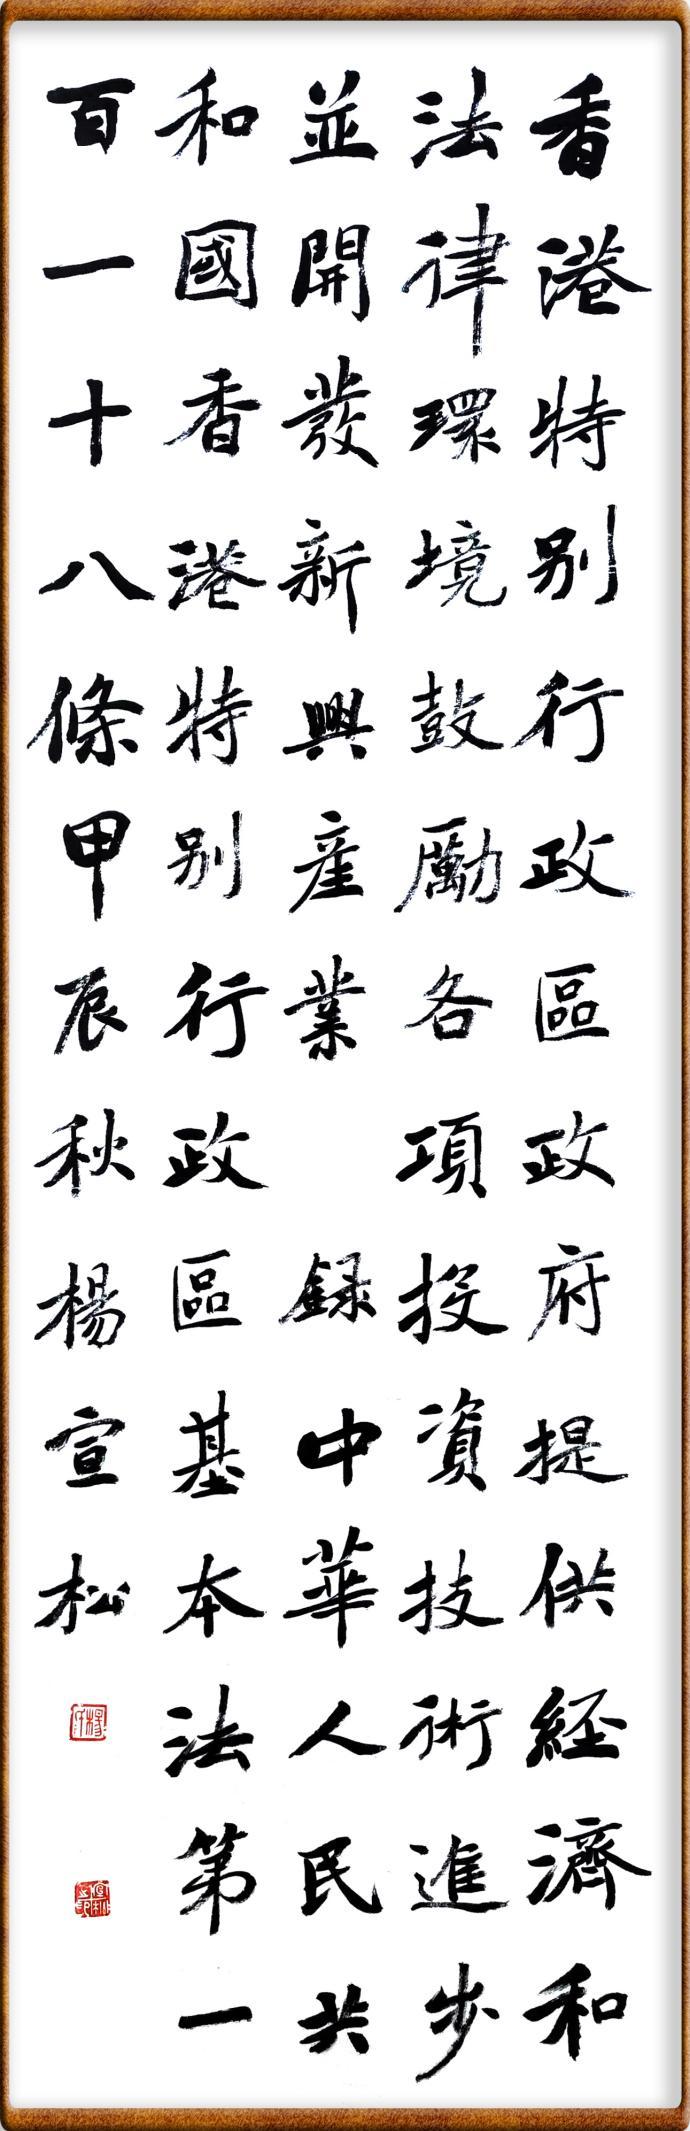 香港特别行政區政府提供經濟和
法律環境鼓勵各項投資技術進步
並開發新興產業 録中華人民共
和國香港特别行政區基本法第一
百一十八條甲辰秋楊宣松